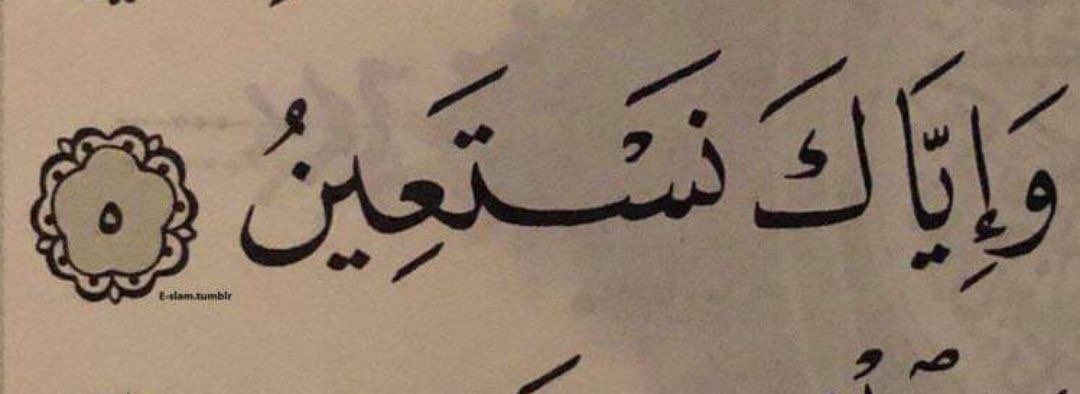 وَإِيَّاكَ نَسْتَعِينُ ٥
E-slam.tumblr